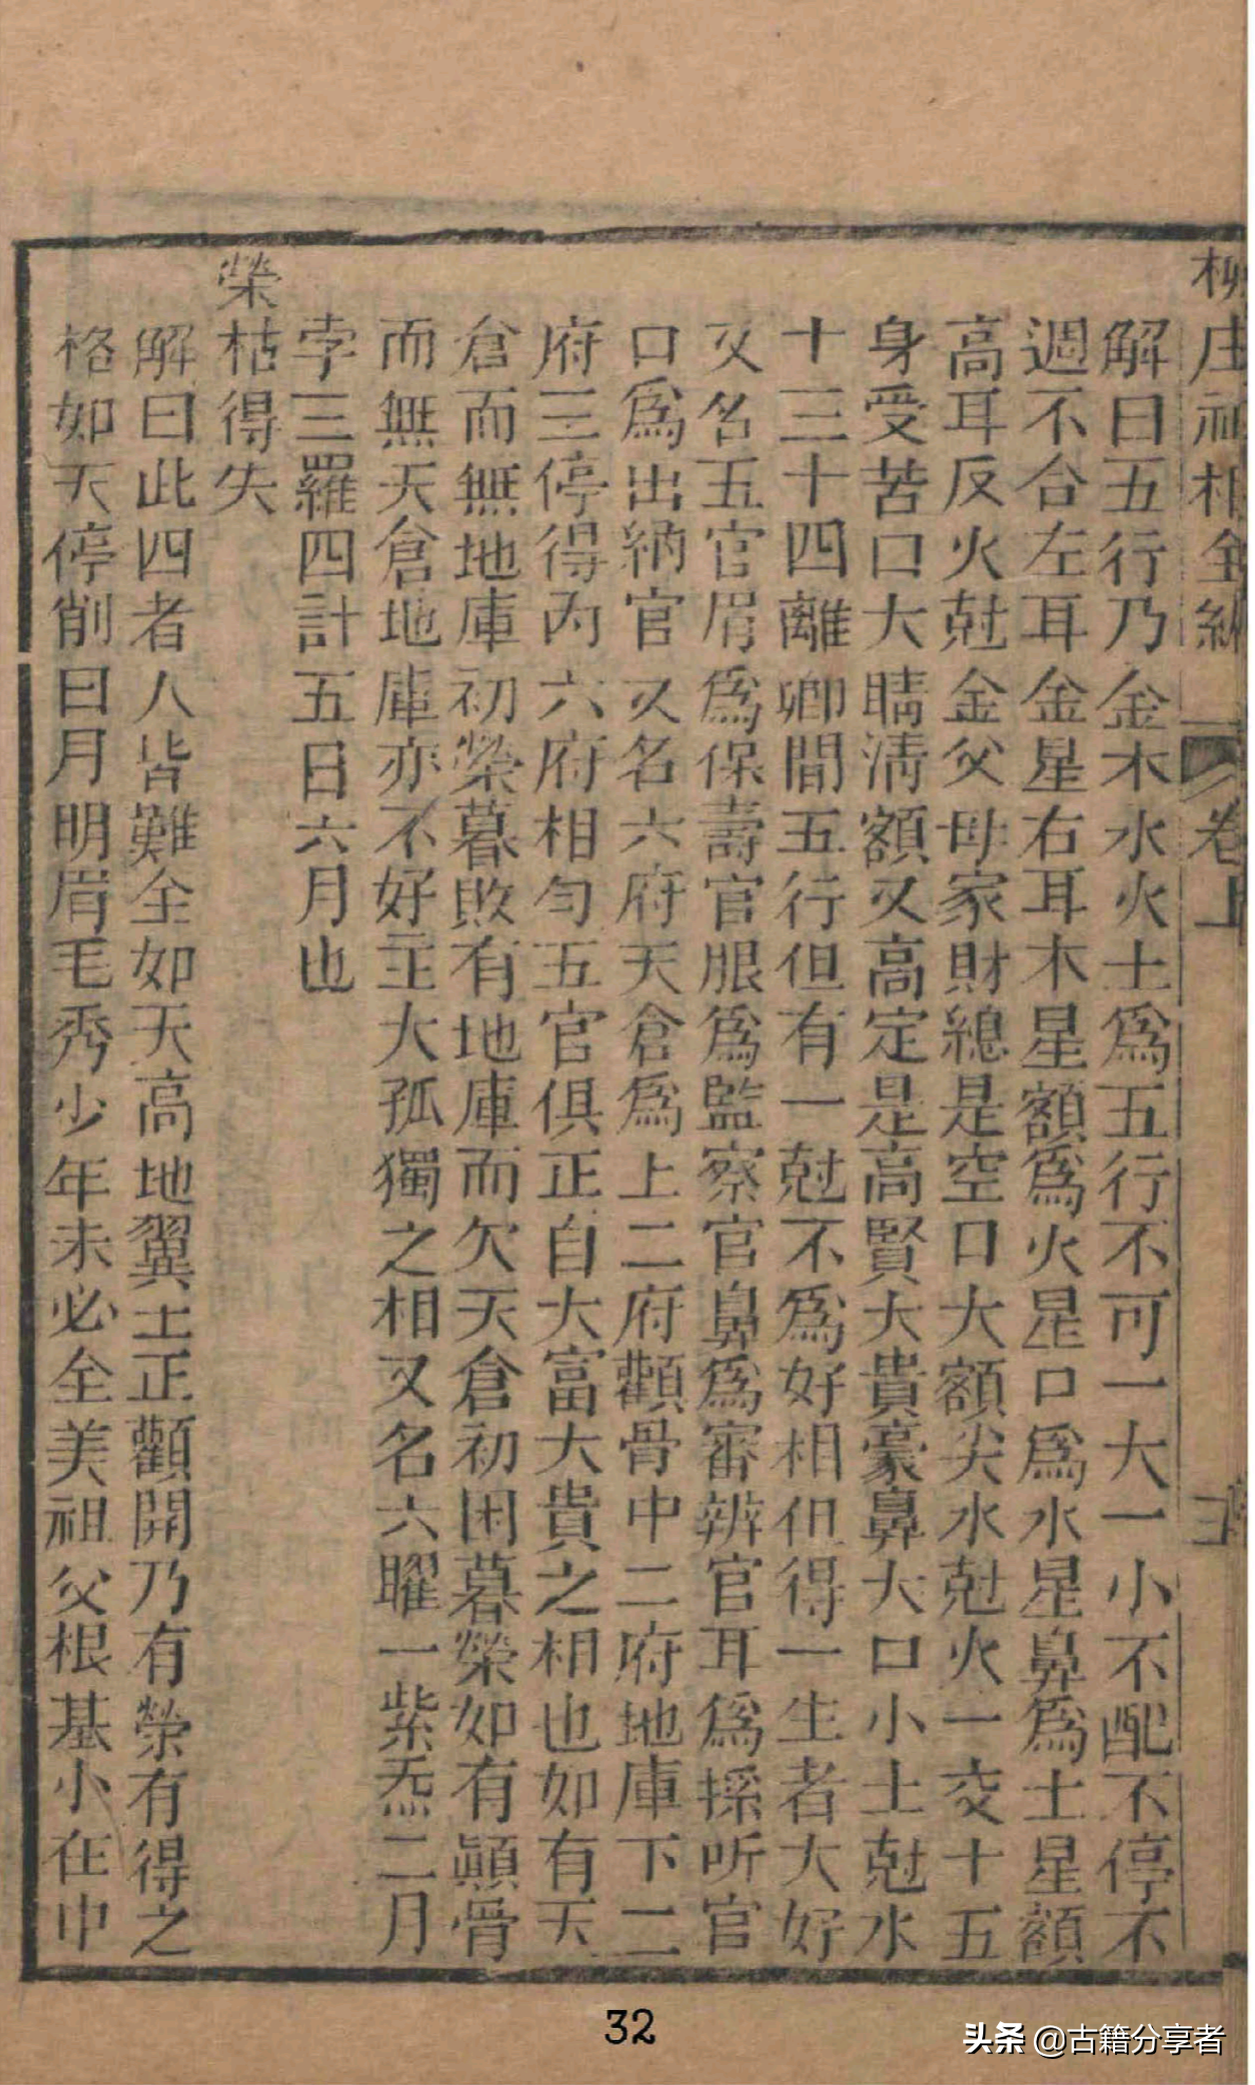 柳庄神相全編 卷上 三
解曰五行乃金木水火土爲五行不可一大一小不配不停不
週不合左耳金星右耳木星額爲火星口爲水星鼻爲土星額
高耳反火尅金父母家財總是空口大額尖水尅火一交十五
身受苦口大睛清額又高定是高賢大貴豪鼻大口小土尅水
十三十四離鄉間五行但有一尅不爲好相但得一生者大好
又名五官眉爲保壽官眼爲監察官鼻爲審辨官耳爲採听官
口爲出納官又名六府天倉爲上二府顴骨中二府地庫下二
府三停得內六府相勻五官俱正自大富大貴之相也如有天
倉而無地庫初榮暮敗有地庫而欠天倉初困暮榮如有顴骨
而無天倉地庫亦不好主大孤獨之相又名六曜一紫炁二月
孛三羅四計五日六月也
榮枯得失
解曰此四者人皆難全如天高地翼土正顴開乃有榮有得之
格如天停削日月明眉毛秀少年未必全美祖父根基小在中
32
头条 @古籍分享者